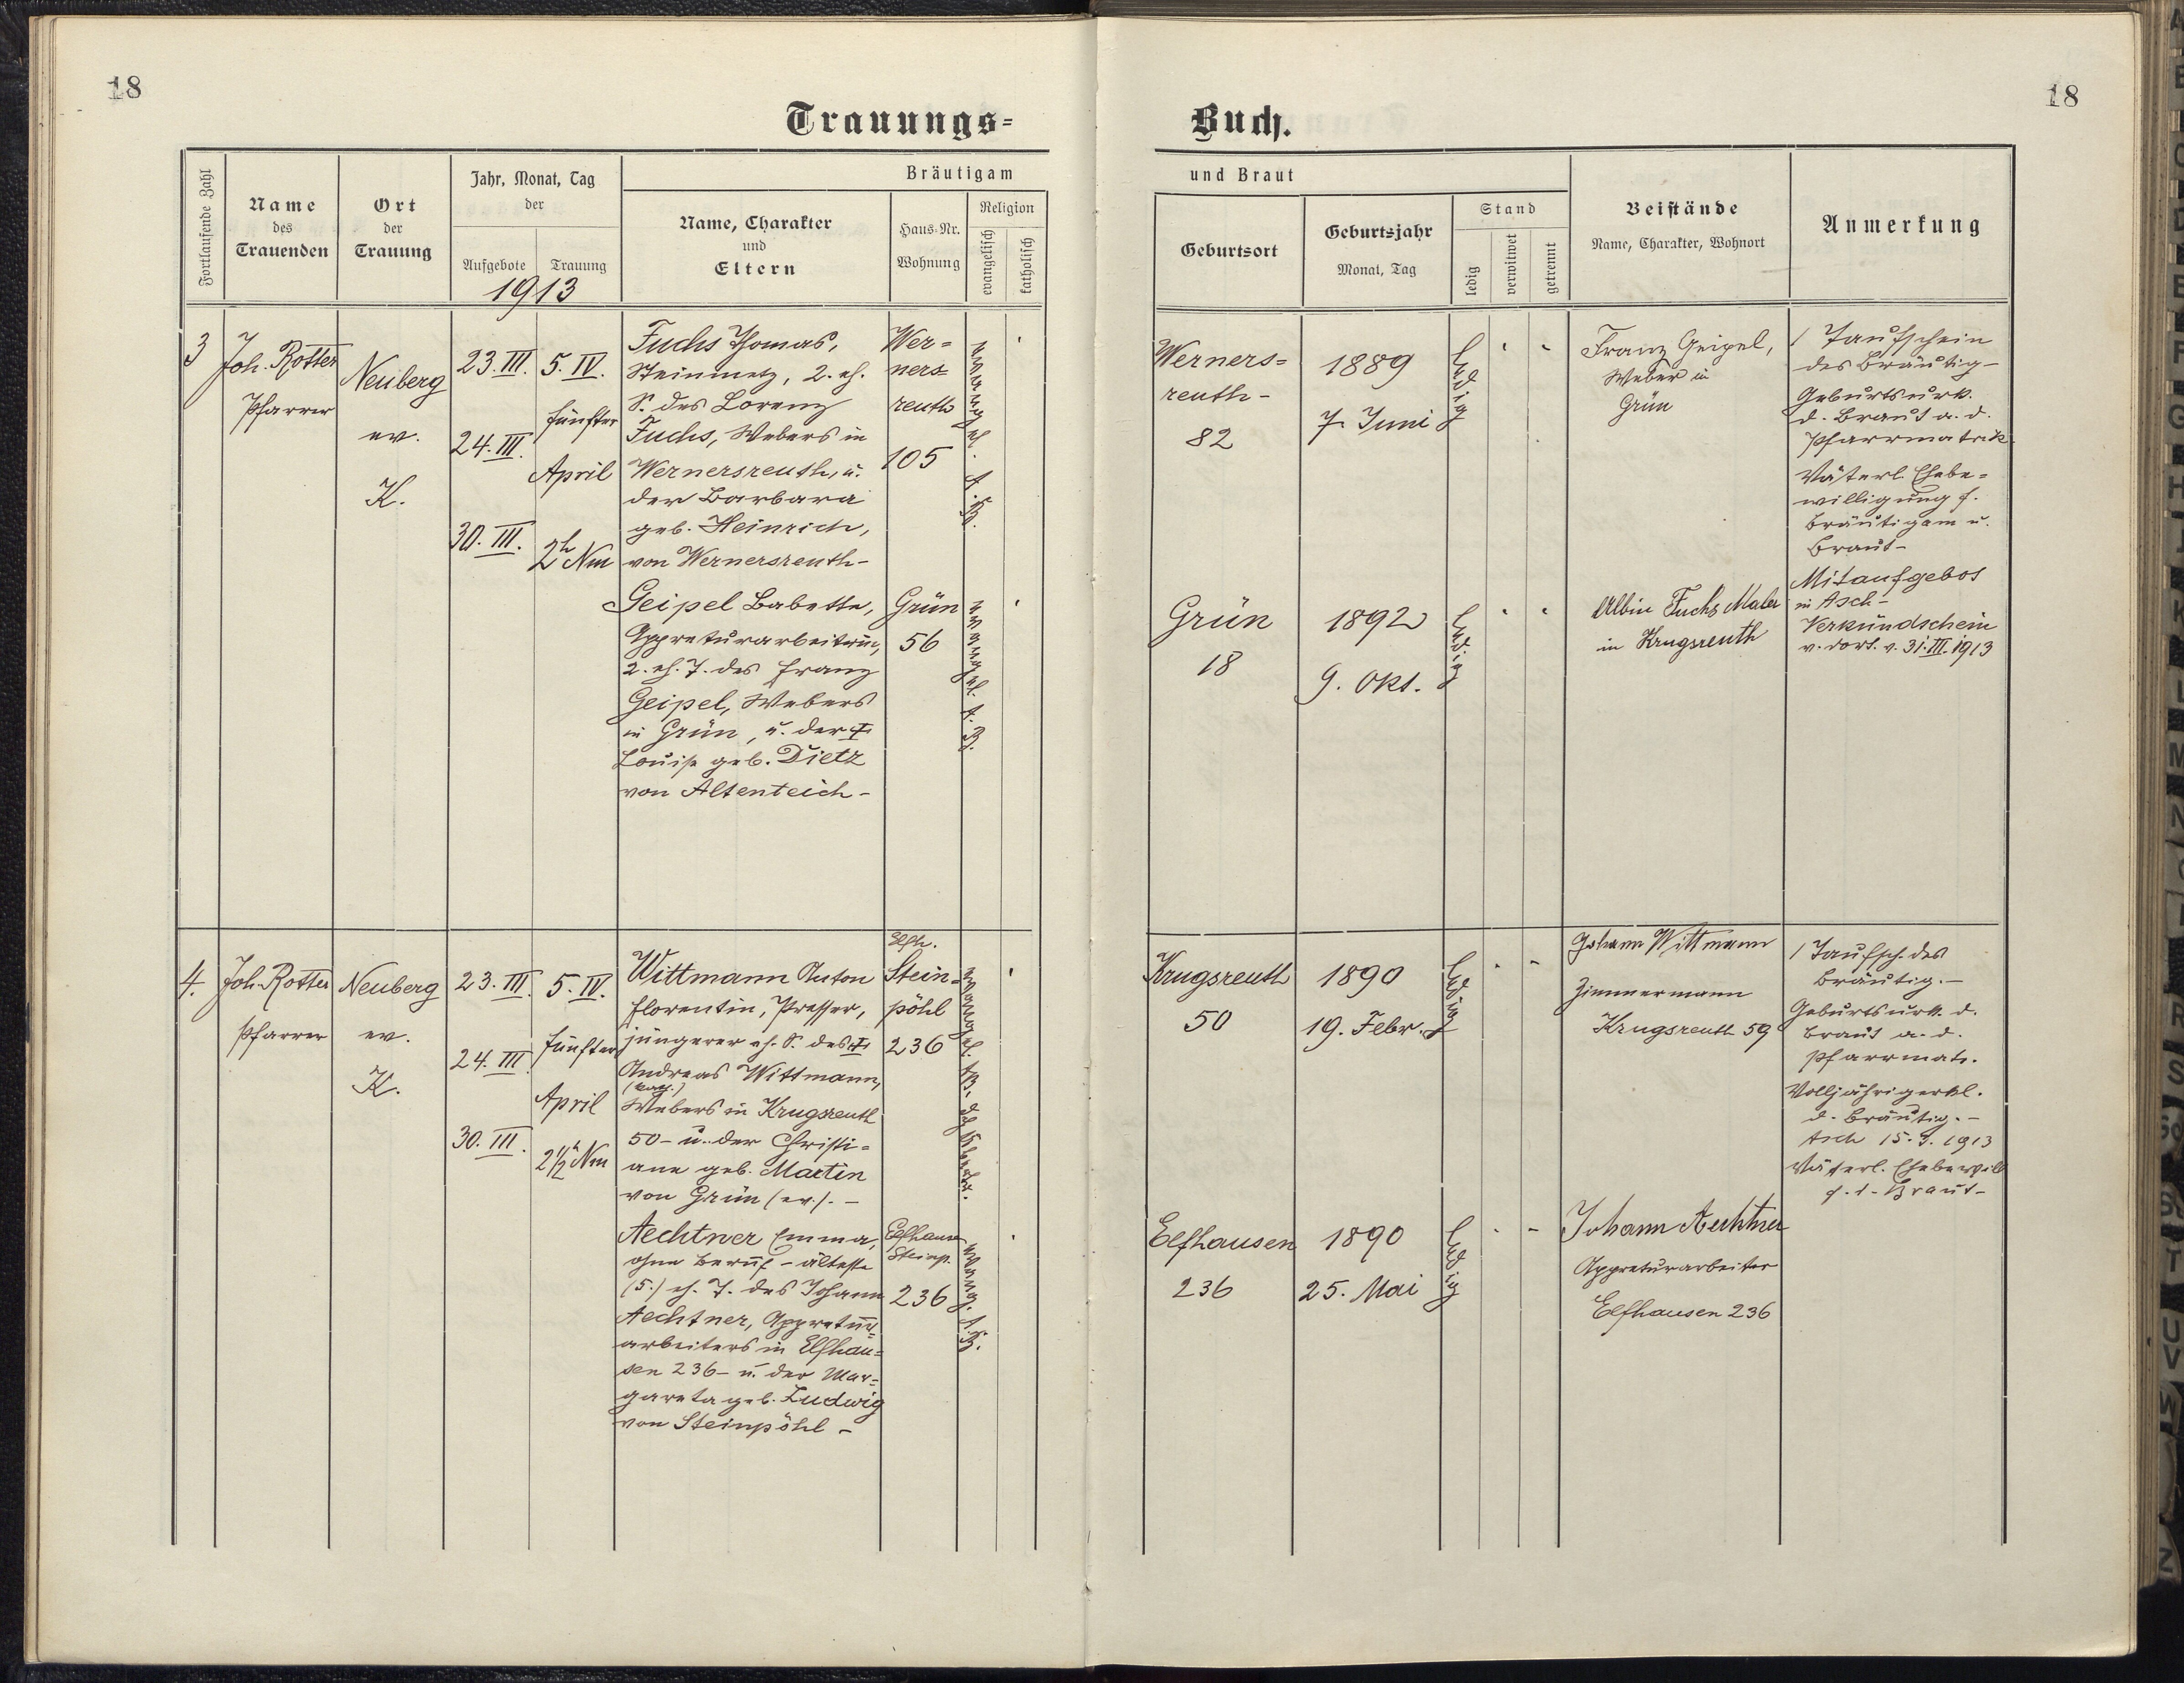 18
18
Trauungs=
Buch.
Fortlaufende Zahl
Name
des
Trauenden
Ort
der
Trauung
Jahr, Monat, Tag
der
Aufgebote
Trauung
1913
Bräutigam
Name, Charakter
und
Eltern
Haus-Nr.
Wohnung
Religion
evangelisch
katholisch
und Braut
Geburtsort
Geburtsjahr
Monat, Tag
Stand
ledig
verwitwet
getrennt
Beistände
Name, Charakter, Wohnort
Anmerkung
3
Joh. Rotter
Pfarrer
Neuberg
ev.
K.
23. III.
24. III.
30. III.
5. IV.
fünfter
April
2h Nm
Fuchs Thomas,
Steinmetz, 2. eh.
S. des Lorenz
Fuchs, Webers in
Wernersreuth, u.
der Barbara
geb. Heinrich,
von Wernersreuth-
Wer=
ners=
reuth
105
evangel. A.B.
Werners=
reuth-
82
1889
7. Juni
ledig
Franz Geipel,
Weber in
Grün
/ Taufschein
des Bräutig-
Geburtsurk.
d. Braut a. d.
Pfarrmatrik
Väterl. Ehebe=
willigung f.
Bräutigam u.
Braut-
Mitaufgebot
in Asch-
Verkündschein
v. dort. v. 31. III. 1913
Geipel Babette,
Appreturarbeiterin,
2. eh. T. des Franz
Geipel, Webers
in Grün, u. der †
Louise geb. Dietz
von Altenteich-
Grün
56
evangel. A.B.
Grün
18
1892
9. Okt.
ledig
Albin Fuchs Maler
in Krugsreuth
4.
Joh. Rotter
Pfarrer
Neuberg
ev.
K.
23. III.
24. III.
30. III.
5. IV.
fünfter
April
2½h Nm
Wittmann Anton
Florentin, Presser,
jüngerer eh. S. des †
Andreas Wittmann,
(kath.)
Webers in Krugsreuth
50- u. der Christi=
ane geb. Martin
von Grün (ev.). -
Elfh.
Stein=
pöhl
236
evangel. A.B.
Krugsreuth
50
1890
19. Febr.
ledig
Johann Wittmann
Zimmermann
Krugsreuth 59
/ Taufsch. des
Bräutig. -
Geburtsurk. d.
Braut a. d.
Pfarrmatr.
Volljährigerkl.
d. Bräutig. -
Asch 15. 1913
Väterl. Ehebewill
f. d. Braut-
Aechtner Emma,
ohne Beruf - älteste
(5.) eh. T. des Johann
Aechtner, Appretur=
arbeiters in Elfhau=
sen 236- u. der Mar=
gareta geb. Ludwig
von Steinpöhl -
Elfhausen
Steinp.
236
evang. A.B.
Elfhausen
236
1890
25. Mai
ledig
Johann Aechtner
Appreturarbeiter
Elfhausen 236